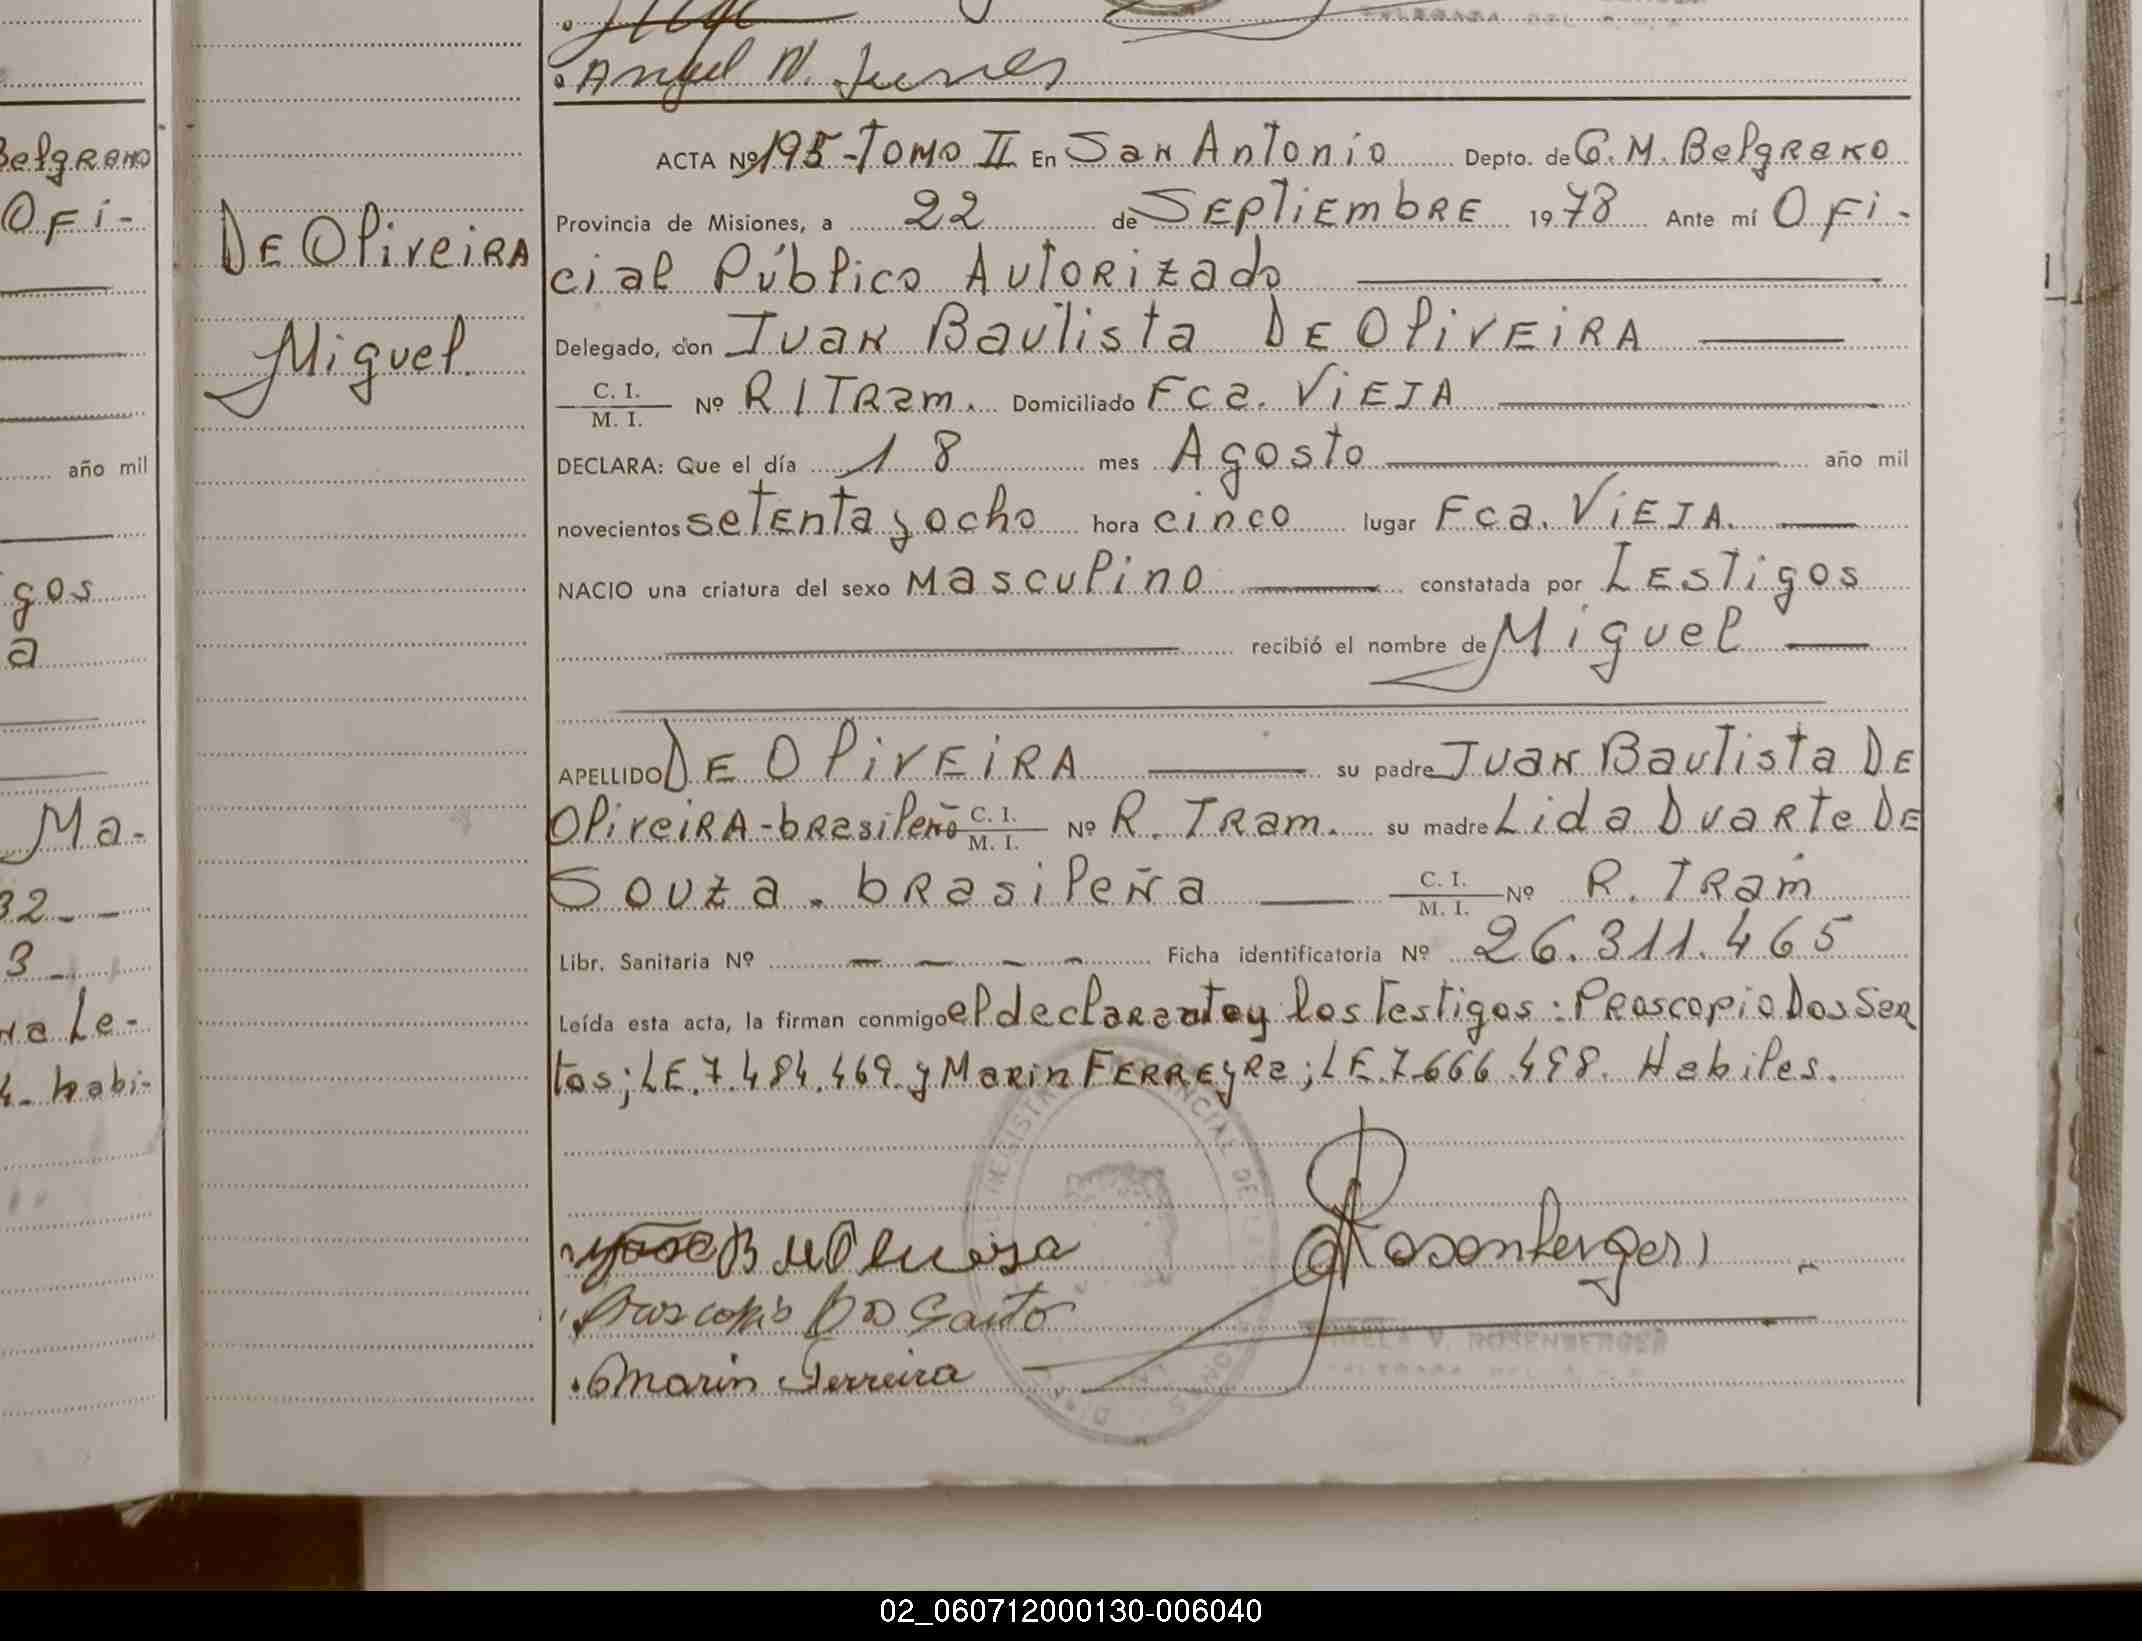 Angel N. Junes
ACTA Nº 195 - Tomo II En San Antonio Depto. de G. M. Belgrano
Provincia de Misiones, a 22 de Septiembre 1978 Ante mí Ofi-
cial Público Autorizado
Delegado, don Juan Bautista DE OliveiRA
C. I.
M. I. Nº R/Tram. Domiciliado Fca. Vieja
DECLARA: Que el día 18 mes Agosto año mil
novecientos setenta y ocho hora cinco lugar Fca. Vieja.
NACIO una criatura del sexo masculino constatada por Testigos
recibió el nombre de Miguel
APELLIDO DE OliveiRA su padre Juan Bautista DE
OliveiRA - brasileño C. I.
M. I. Nº R. Tram. su madre Lida Duarte DE
Souza. brasileña C. I.
M. I. Nº R. Tram
Libr. Sanitaria Nº - - - - Ficha identificatoria Nº 26.311.465
Leída esta acta, la firman conmigo el declarante y los Testigos: Proscopio Dos San
tos; LE. 7.484.469 y Marin Ferreyra; LE. 7.666.498. Habiles.
Rosenberger
Proscopio Dos Santo
Marin Ferreira
DE OliveiRA
Miguel.
Belgrano
Ofi-
año mil
gos
a
Ma-
32 - -
3 -
na Le-
4. habi-
02_060712000130-006040